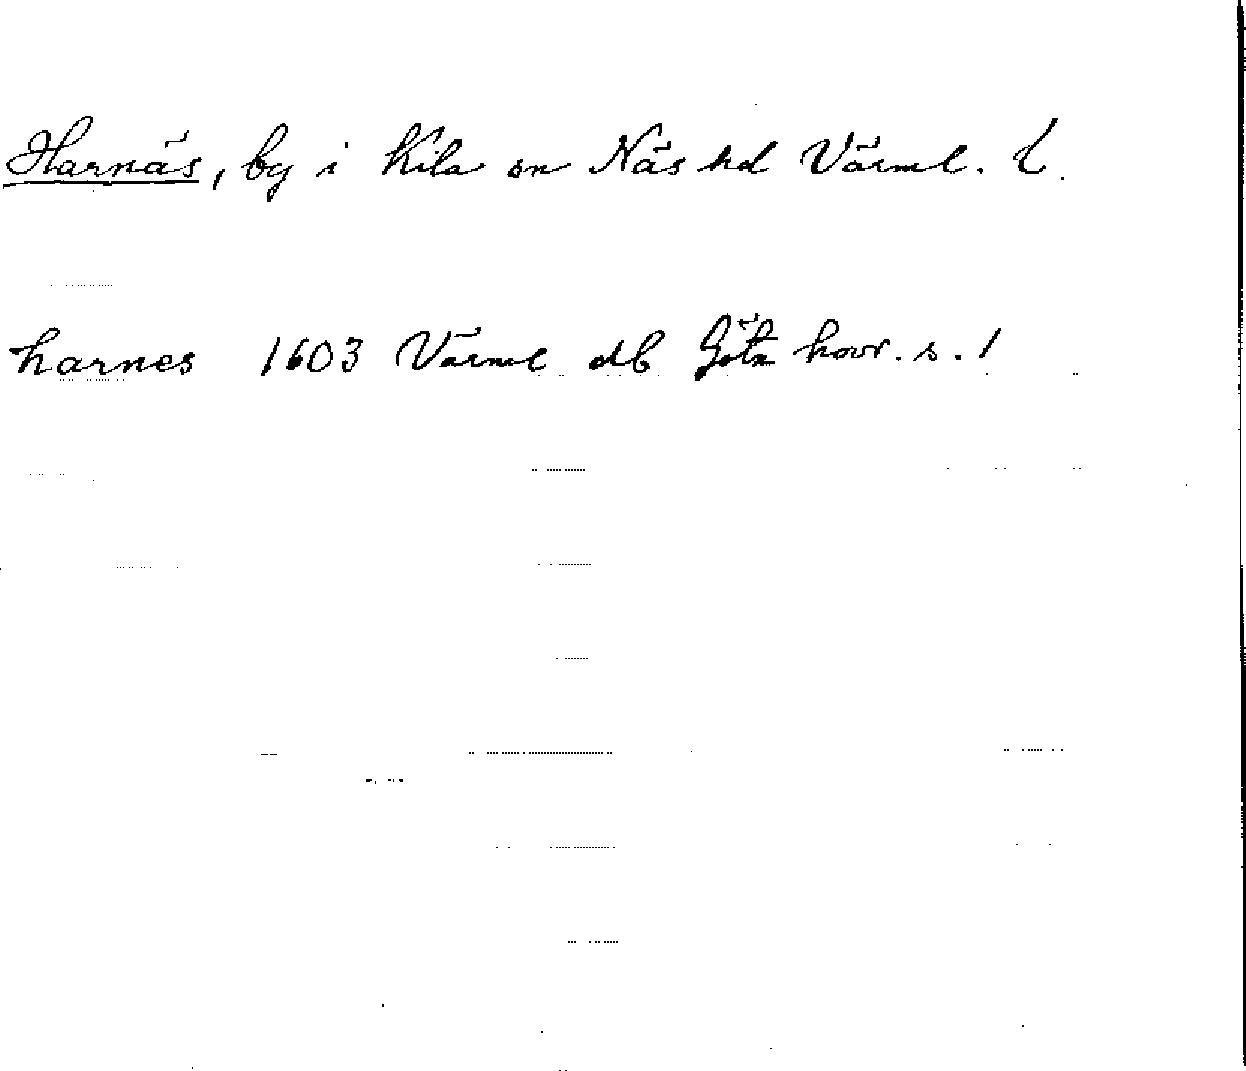 Harnäs, by i Kila sn Näs hd Värml. L.
harnes 1603 Värml db Göta hovr. s. 1